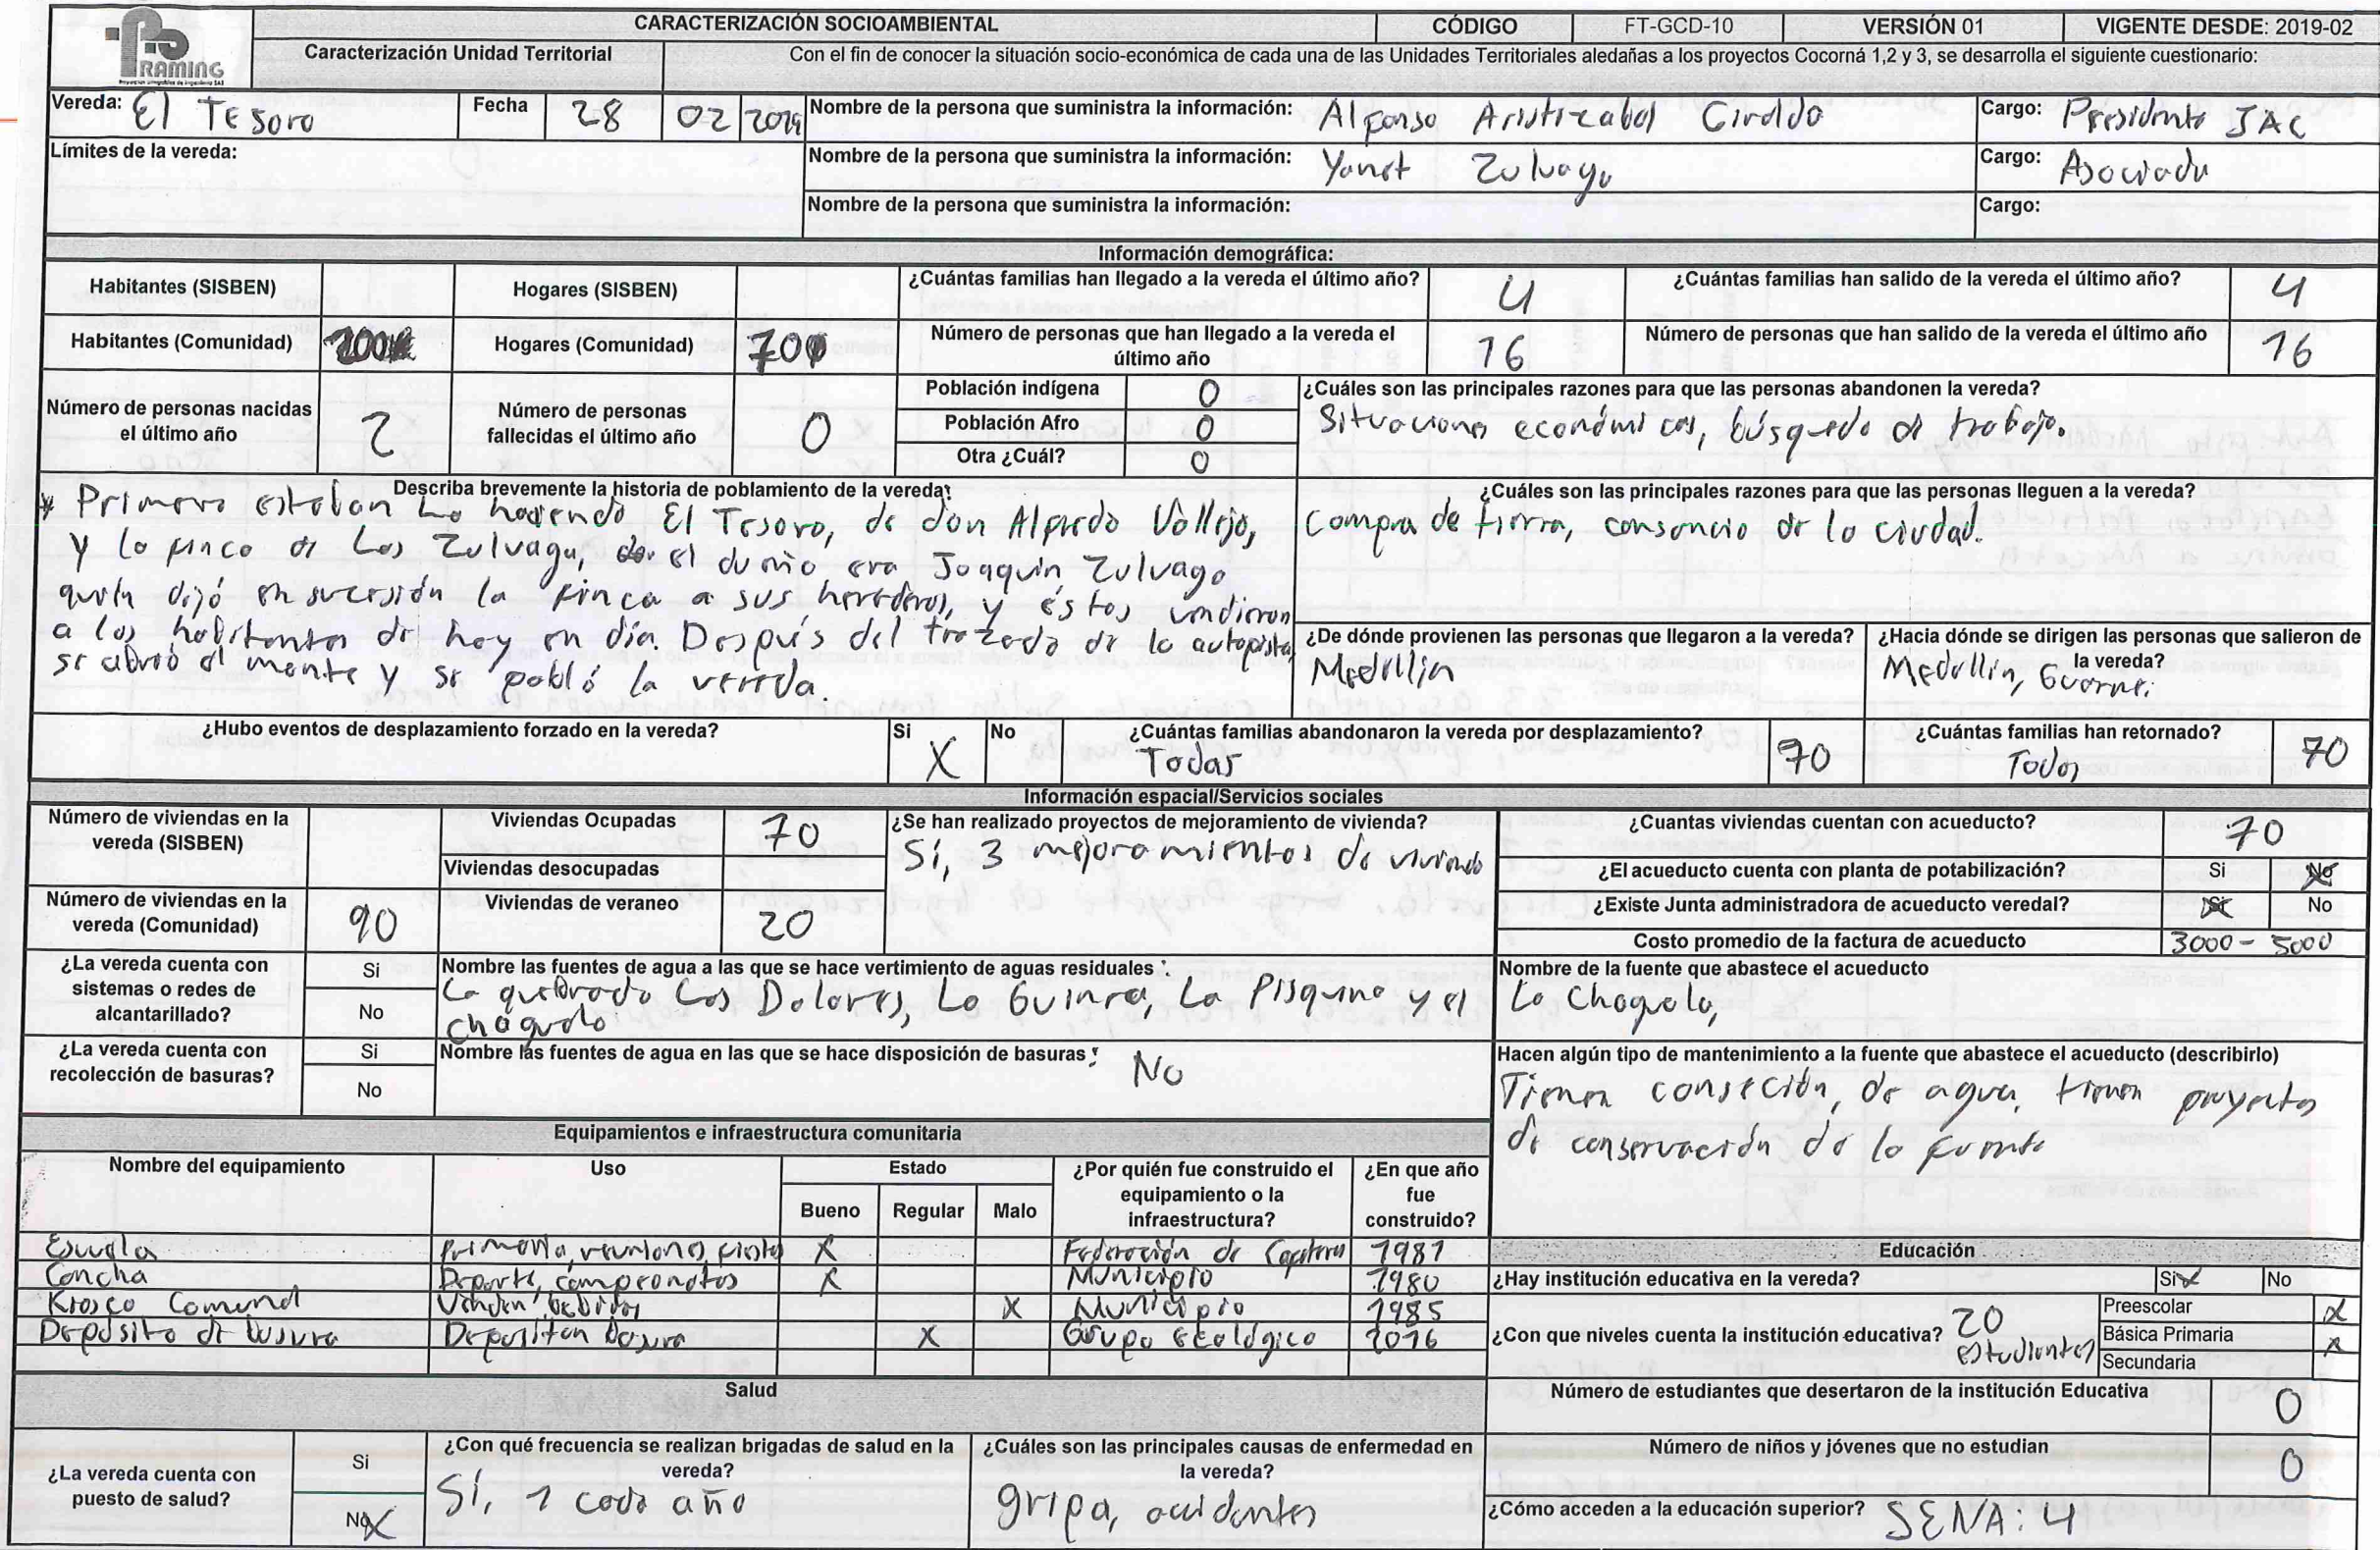 PRAMING
CARACTERIZACIÓN SOCIOAMBIENTAL CÓDIGO FT-GCD-10 VERSIÓN 01 VIGENTE DESDE: 2019-02
Caracterización Unidad Territorial Con el fin de conocer la situación socio-económica de cada una de las Unidades Territoriales aledañas a los proyectos Cocorná 1,2 y 3, se desarrolla el siguiente cuestionario:
Vereda: El Tesoro Fecha 28 02 2019 Nombre de la persona que suministra la información: Alfonso Aristizabal Giraldo Cargo: Presidente JAC
Límites de la vereda: Nombre de la persona que suministra la información: Yanet Zuluaga Cargo: Asociada
Nombre de la persona que suministra la información: Cargo:
Información demográfica:
Habitantes (SISBEN) Hogares (SISBEN) ¿Cuántas familias han llegado a la vereda el último año? 4 ¿Cuántas familias han salido de la vereda el último año? 4
Habitantes (Comunidad) Hogares (Comunidad) 70 Número de personas que han llegado a la vereda el último año 16 Número de personas que han salido de la vereda el último año 16
Número de personas nacidas el último año 2 Número de personas fallecidas el último año 0
Población indígena 0
Población Afro 0
Otra ¿Cuál? 0
¿Cuáles son las principales razones para que las personas abandonen la vereda?
Situaciones económicas, búsqueda de trabajo.
Describa brevemente la historia de poblamiento de la vereda:
* Primero estaban La hacienda El Tesoro, de don Alfredo Vallejo,
y la finca de Los Zuluaga, el dueño era Joaquín Zuluaga
quien dejó en sucesión la finca a sus herederos, y éstos vendieron
a los habitantes de hoy en día. Después del trazado de la autopista
se abrió el monte y se pobló la vereda.
¿Cuáles son las principales razones para que las personas lleguen a la vereda?
Compra de tierra, cansancio de la ciudad.
¿De dónde provienen las personas que llegaron a la vereda?
Medellín
¿Hacia dónde se dirigen las personas que salieron de la vereda?
Medellín, Guarne.
¿Hubo eventos de desplazamiento forzado en la vereda? Si X No ¿Cuántas familias abandonaron la vereda por desplazamiento? Todas 70 ¿Cuántas familias han retornado? Todas 70
Información espacial/Servicios sociales
Número de viviendas en la vereda (SISBEN)
Viviendas Ocupadas 70
Viviendas desocupadas
Número de viviendas en la vereda (Comunidad) 90
Viviendas de veraneo 20
¿Se han realizado proyectos de mejoramiento de vivienda?
Sí, 3 mejoramientos de vivienda
¿Cuantas viviendas cuentan con acueducto? 70
¿El acueducto cuenta con planta de potabilización? Si No X
¿Existe Junta administradora de acueducto veredal? Si X No
Costo promedio de la factura de acueducto 3000 - 5000
¿La vereda cuenta con sistemas o redes de alcantarillado? Si No
Nombre las fuentes de agua a las que se hace vertimiento de aguas residuales:
La quebrada Los Dolores, La Guinea, La Pisquina y el
chagualo
Nombre de la fuente que abastece el acueducto
La Chaguala,
¿La vereda cuenta con recolección de basuras? Si No
Nombre las fuentes de agua en las que se hace disposición de basuras: No
Hacen algún tipo de mantenimiento a la fuente que abastece el acueducto (describirlo)
Tienen conseción de agua, tienen proyectos
de conservación de la fuente
Equipamientos e infraestructura comunitaria
Nombre del equipamiento Uso Estado ¿Por quién fue construido el equipamiento o la infraestructura? ¿En que año fue construido?
Bueno Regular Malo
Escuela Primaria, reuniones, fiestas X Federación de Cafeteros 1981
Cancha Deporte, campeonatos X Municipio 1980
Kiosco Comunal Venden bebidas X Municipio 1985
Depósito de basura Depositan basura X Grupo ecológico 2016
Educación
¿Hay institución educativa en la vereda? Si X No
¿Con que niveles cuenta la institución educativa? 20 estudiantes
Preescolar X
Básica Primaria X
Secundaria
Número de estudiantes que desertaron de la institución Educativa 0
Número de niños y jóvenes que no estudian 0
¿Cómo acceden a la educación superior? SENA: 4
Salud
¿La vereda cuenta con puesto de salud? Si No X
¿Con qué frecuencia se realizan brigadas de salud en la vereda?
Sí, 1 cada año
¿Cuáles son las principales causas de enfermedad en la vereda?
gripa, accidentes